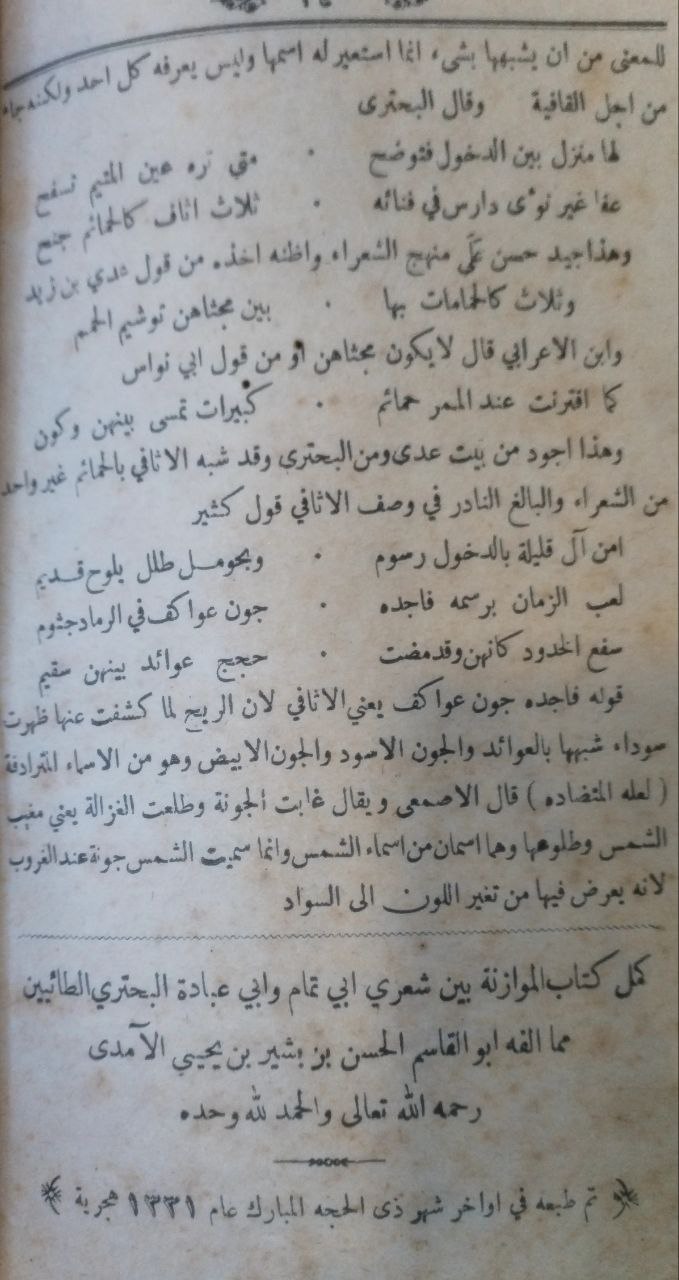 للمعنى من ان يشبهها بشيء انما استعير له اسمها وليس يعرفه كل احد ولكنه جاء
من اجل القافية وقال البحترى
لها منزل بين الدخول فتوضح · متى تره عين المتيم تسفح
عفا غير نوءى دارس في فنائه · ثلاث اثاف كالحمائم جنح
وهذا جيد حسن على منهج الشعراء واظنه اخذه من قول عدي بن زيد
وثلاث كالحمامات بها · بين مجثاهن توشيم الحمم
وابن الاعرابي قال لا يكون مجثاهن او من قول ابي نواس
كما اقترنت عند الممر حمائم · كبيرات تمسى بينهن وكون
وهذا اجود من بيت عدى ومن البحترى وقد شبه الاثافي بالحمائم غير واحد
من الشعراء والبالغ النادر في وصف الاثافي قول كثير
امن آل قليلة بالدخول رسوم · وبحومل طلل يلوح قديم
لعب الزمان برسمه فاجده · جون عواكف في الرماد جثوم
سفع الخدود كانهن وقد مضت · حجج عوائد بينهن سقيم
قوله فاجده جون عواكف يعني الاثافي لان الريح لما كشفت عنها ظهرت
سوداء شبهها بالعوائد والجون الاسود والجون الابيض وهو من الاسماء المترادفة
( لعله المتضاده ) قال الاصمعى ويقال غابت الجونة وطلعت الغزالة يعني مغيب
الشمس وطلوعها وهما اسمان من اسماء الشمس وانما سميت الشمس جونة عند الغروب
لانه يعرض فيها من تغير اللون الى السواد
كمل كتاب الموازنة بين شعري ابي تمام وابي عبادة البحتري الطائيين
مما الفه ابو القاسم الحسن بن بشير بن يحيي الآمدى
رحمه الله تعالى والحمد لله وحده
تم طبعه في اواخر شهر ذى الحجه المبارك عام ١٣٣١ هجرية